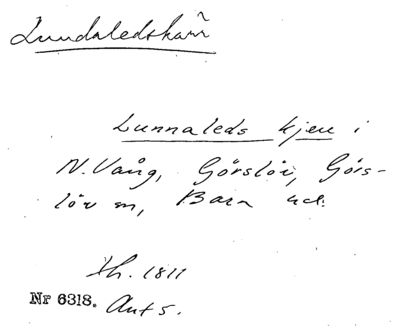 Lundaledskäñ
Lunnaleds kjeu i
N. Vång, Görslöv, Görs-
löv sn, Bara hd.
Th. 1811
Nr 6318. Ant 5.